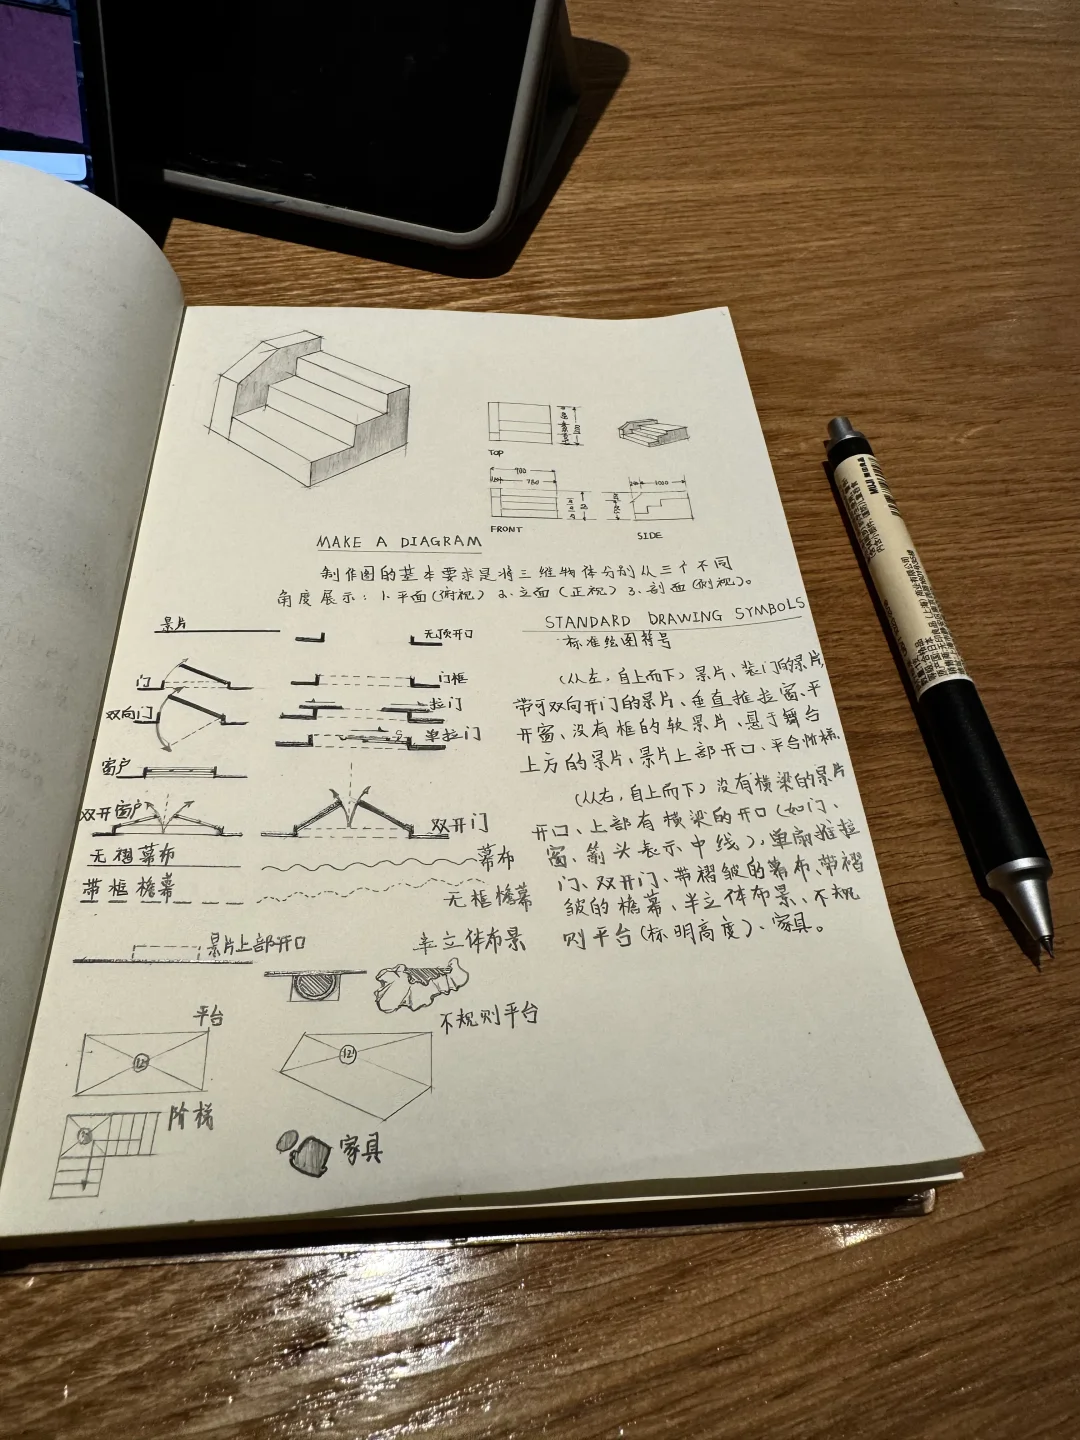 TOP
900
780
1000
FRONT
SIDE
MAKE A DIAGRAM
制作图的基本要求是将三维物体分别从三个不同
角度展示：1.平面(俯视) 2.立面(正视) 3.剖面(侧视)。
STANDARD DRAWING SYMBOLS
标准绘图符号
景片
无顶开口
门
门框
双向门
拉门
单拉门
窗户
双开窗户
双开门
无褶幕布
幕布
带框檐幕
无框檐幕
景片上部开口
半立体布景
平台
不规则平台
12
12
阶梯
家具
(从左，自上而下) 景片、装门的景片、
带可双向开门的景片、垂直推拉窗、平
开窗、没有框的软景片、悬于舞台
上方的景片、景片上部开口、平台阶梯、
(从右，自上而下) 没有横梁的景片
开口、上部有横梁的开口(如门、
窗、箭头表示中线)、单扇推拉
门、双开门、带褶皱的幕布、带褶
皱的檐幕、半立体布景、不规
则平台(标明高度)、家具。
MUJ